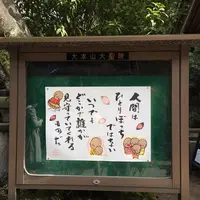 大本山大聖院
人間は
ひとりぼっち
ではない
いつも
どこかで誰かが
見守っていてくれる
ものだ。